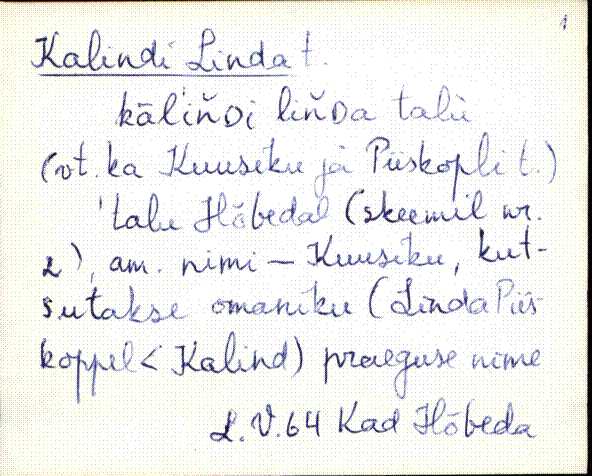 1
Kalindi Linda t.
kāl'iňDi liňDa talu
(vt. ka Kuusiku ja Piiskopli t.)
'talu Hõbedal (skeemil nr.
2), am. nimi – Kuusiku, kut-
sutakse omaniku (Linda Piis-
koppel < Kalind) praeguse nime
L.V.64 Kad Hõbeda